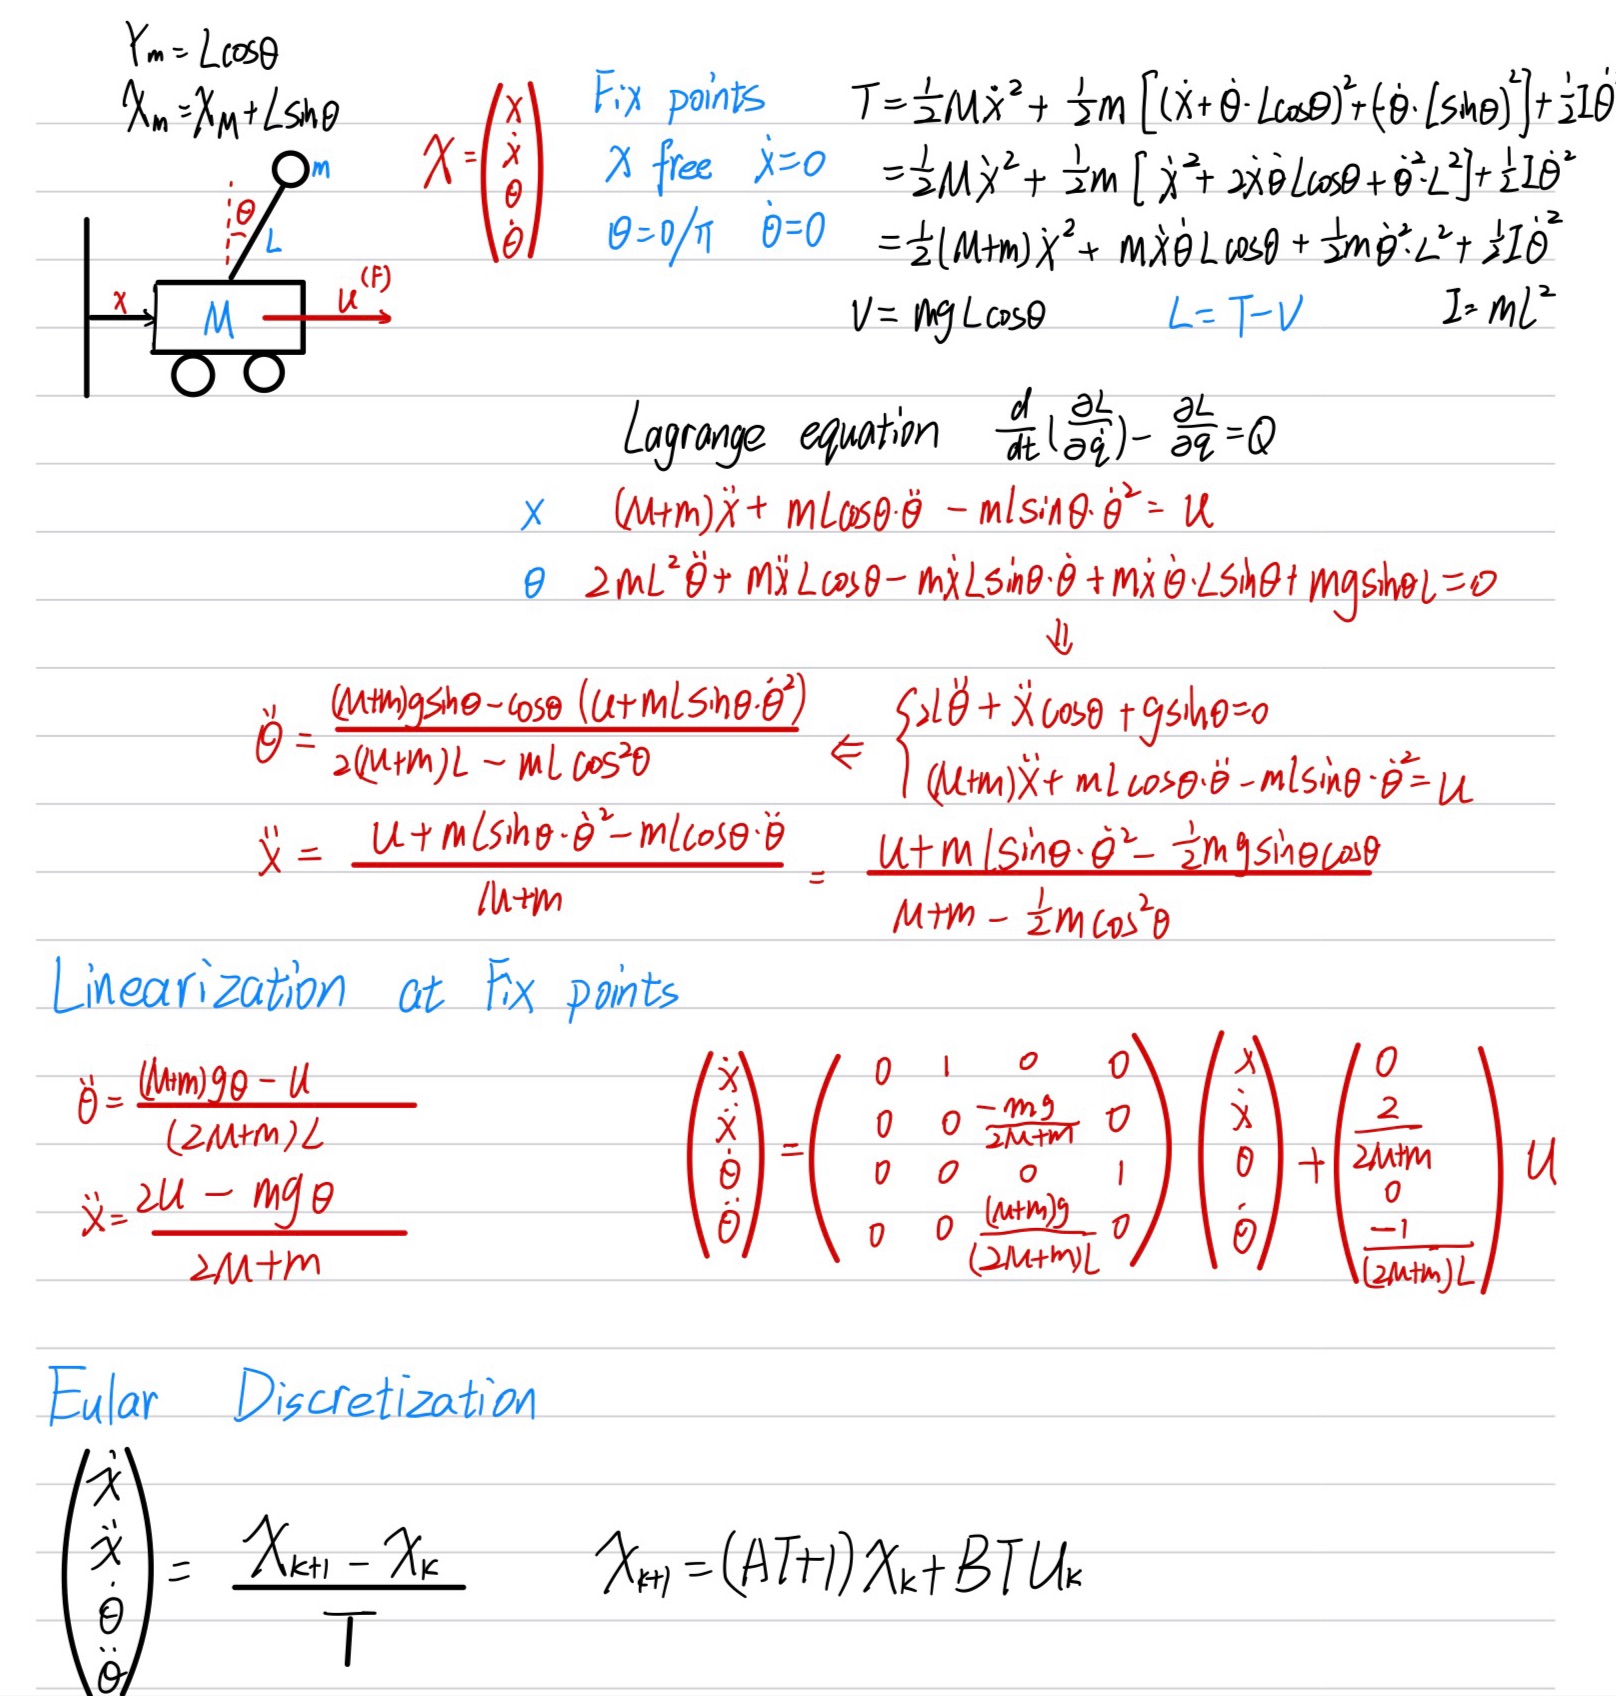 Ym = Lcosθ
Xm = XM + Lsinθ
m
θ
L
x
M
u (F)
X = (x ẋ θ θ̇)
Fix points
x free ẋ=0
θ=0/π θ̇=0
T = ½Mẋ² + ½m[(ẋ+θ̇·Lcosθ)²+(-θ̇·Lsinθ)²]+½Iθ̇
= ½Mẋ² + ½m[ẋ²+2ẋθ̇Lcosθ+θ̇²·L²]+½Iθ̇²
= ½(M+m)ẋ² + mẋθ̇Lcosθ + ½mθ̇²·L² + ½Iθ̇²
V = mgLcosθ L = T-V I = ml²
Lagrange equation d/dt(∂L/∂q̇) - ∂L/∂q = Q
x (M+m)ẍ + mLcosθ·θ̈ - mlsinθ·θ̇² = u
θ 2mL²θ̈ + mẍLcosθ - mẋLsinθ·θ̇ + mẋθ̇·Lsinθ + mgsinθL = 0
⇓
θ̈ = ((M+m)gsinθ - cosθ(u+mLsinθ·θ̇²))/(2(M+m)L - mLcos²θ) ⇐ { 2lθ̈ + ẍcosθ + gsinθ = 0
(M+m)ẍ + mLcosθ·θ̈ - mlsinθ·θ̇² = u
ẍ = (u + mLsinθ·θ̇² - mlcosθ·θ̈)/(M+m) = (u + mLsinθ·θ̇² - ½mgsinθcosθ)/(M+m - ½mcos²θ)
Linearization at Fix points
θ̈ = ((M+m)gθ - u)/((2M+m)L)
ẍ = (2u - mgθ)/(2M+m)
(ẋ ẍ θ̇ θ̈) = (0 1 0 0
0 0 -mg/(2M+m) 0
0 0 0 1
0 0 (M+m)g/((2M+m)L) 0) (x ẋ θ θ̇) + (0 2/(2M+m) 0 -1/((2M+m)L)) u
Eular Discretization
(ẋ ẍ θ̇ θ̈) = (Xk+1 - Xk)/T Xk+1 = (AT+1)Xk + BTUk